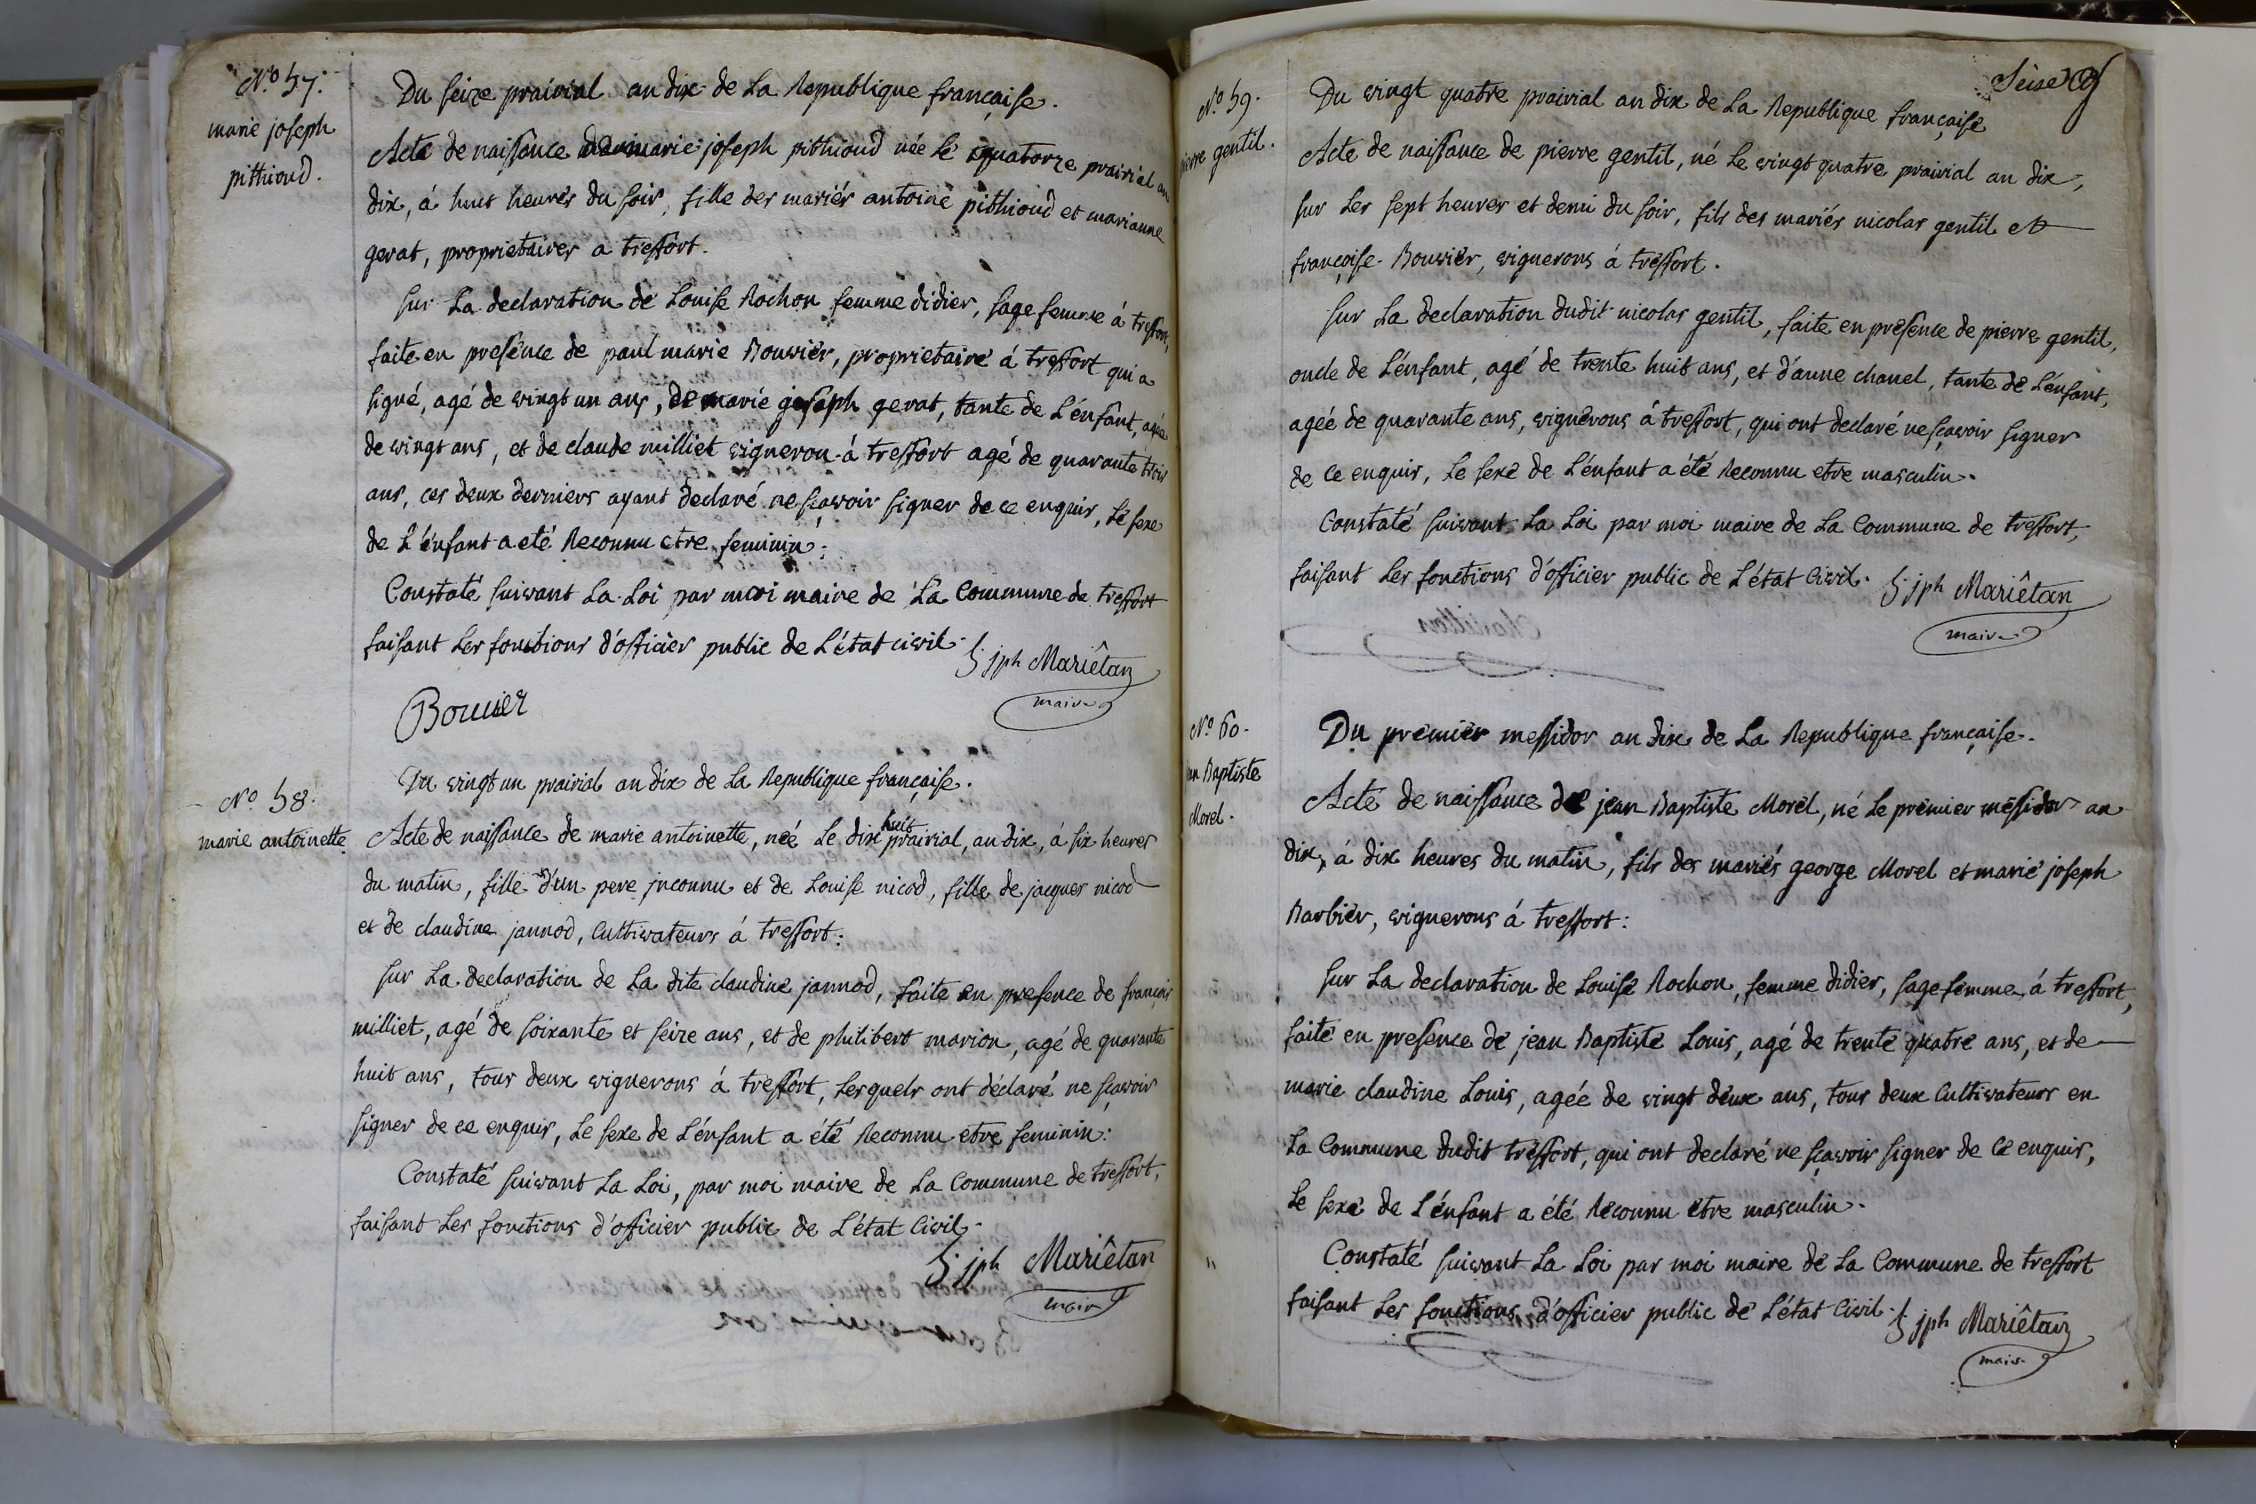 N.o 57.
marie joseph
pithioud.
Du seize prairial an dix de La Republique française.
Acte de naissance de marie joseph pithioud née Le quatorze prairial an
dix, á huit heures du soir, fille des mariés antoine pithioud et marianne
gerat, proprietaires a treffort.
sur La declaration de Louise Rochon femme didier, sage femme á treffort,
faite en presence de paul marie Bouvier, proprietaire á treffort qui a
signé, agé de vingt un ans, de marie joseph gerat, tante de L'énfant, agée
de vingt ans, et de claude milliet vigneron á treffort agé de quarante trois
ans, ces deux derniers ayant declaré ne sçavoir signer de ce enquis, Le sexe
de L'énfant a eté Reconnu etre feminin;
Constaté suivant La Loi par moi maire de La Commune de treffort
faisant Les fonctions d'officier public de L'état civil. S. jph Mariêtan
maire
Bouvier
N.o 58.
marie antoinette.
Du vingt un prairial an dix de La Republique française.
Acte de naissance de marie antoinette, née Le dix huit prairial, an dix, á six heures
du matin, fille d'un pere jnconnu et de Louise nicod, fille de jacques nicod
et de claudine jannod, Cultivateurs á treffort:
sur La declaration de La dite claudine jannod, faite en presence de françois
milliet, agé de soixante et seize ans, et de philibert marion, agé de quarante
huit ans, tous deux vignerons á treffort, Lesquels ont déclaré ne sçavoir
signer de ce enquis, Le sexe de L'énfant a été Reconnu etre feminin:
Constaté suivant La Loi, par moi maire de La Commune de treffort,
faisant Les fonctions d'officier public de L'état Civil.
S. jph Mariêtan
maire
Seise
N.o 59.
pierre gentil.
Du vingt quatre prairial an dix de La Republique française
Acte de naissance de pierre gentil, né Le vingt quatre prairial an dix,
sur Les sept heures et demi du soir, fils des mariés nicolas gentil et
françoise Bouvier, vignerons á treffort.
sur La declaration dudit nicolas gentil, faite en présence de pierre gentil,
oncle de L'énfant, agé de trente huit ans, et d'anne chanel, tante de L'énfant,
agéé de quarante ans, vignerons á treffort, qui ont declaré ne sçavoir signer
de ce enquis, Le sexe de L'énfant a été Reconnu etre masculin.
Constaté suivant La Loi par moi maire de La Commune de treffort,
faisant Les fonctions d'officier public de L'état Civil. S. jph Mariêtan
maire
N.o 60.
jean Baptiste
Morel.
Du premier messidor an dix de La Republique française.
Acte de naissance de jean Baptiste Morel, né Le premier messidor an
dix, á dix heures du matin, fils des mariés george Morel et marie joseph
Barbier, vignerons á treffort:
sur La declaration de Louise Rochon, femme didier, sage femme, á treffort,
faite en presence de jean Baptiste Louis, agé de trente quatre ans, et de
marie claudine Louis, agéé de vingt deux ans, tous deux Cultivateurs en
La Commune dudit treffort, qui ont declaré ne sçavoir signer de ce enquis,
Le sexe de L'énfant a été Reconnu etre masculin.
Constaté suivant La Loi par moi maire de La Commune de treffort
faisant Les fonctions, d'officier public de L'état Civil. S. jph Mariêtan
maire